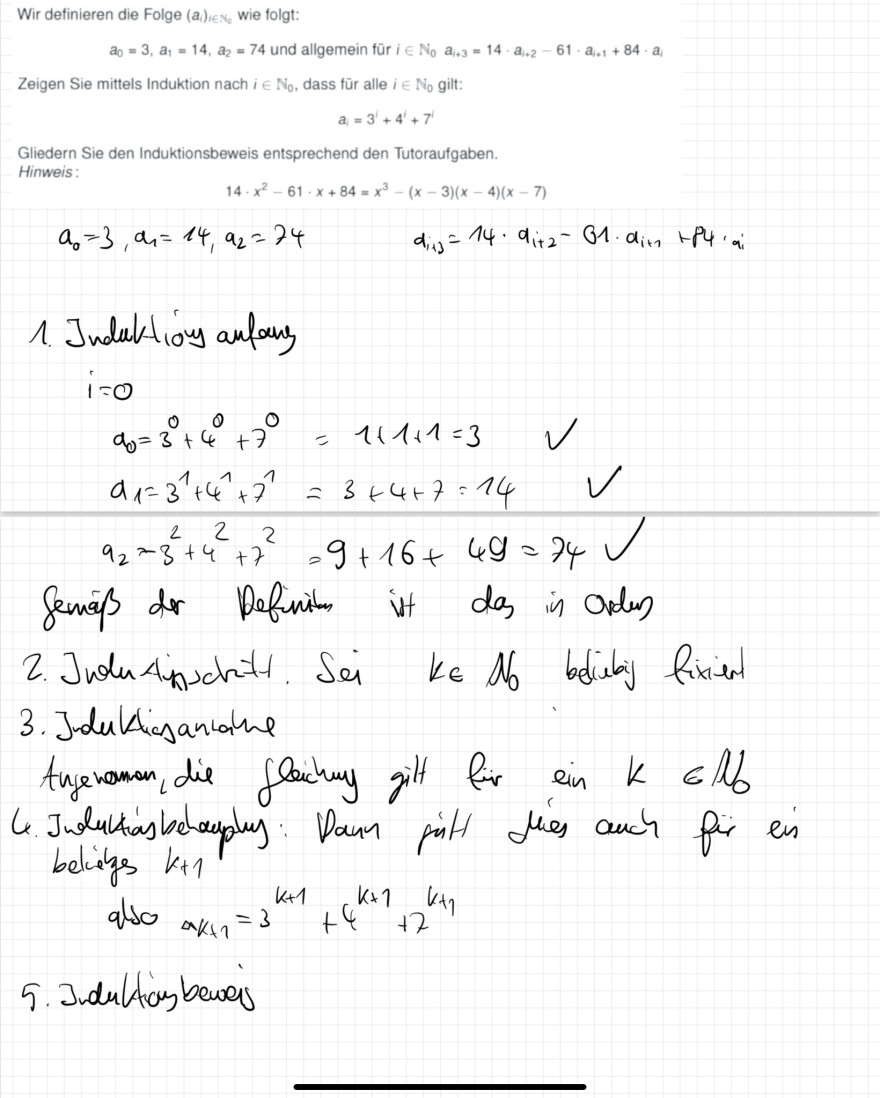 Wir definieren die Folge (aᵢ)ᵢ∈ℕ₀ wie folgt:
a₀ = 3, a₁ = 14, a₂ = 74 und allgemein für i ∈ ℕ₀ aᵢ₊₃ = 14 · aᵢ₊₂ − 61 · aᵢ₊₁ + 84 · aᵢ
Zeigen Sie mittels Induktion nach i ∈ ℕ₀, dass für alle i ∈ ℕ₀ gilt:
aᵢ = 3ⁱ + 4ⁱ + 7ⁱ
Gliedern Sie den Induktionsbeweis entsprechend den Tutoraufgaben.
Hinweis:
14 · x² − 61 · x + 84 = x³ − (x − 3)(x − 4)(x − 7)
a₀=3, a₁=14, a₂=74 aᵢ₊₃ = 14 · aᵢ₊₂ − 61 · aᵢ₊₁ + 84 · aᵢ
1. Induktionsanfang
i=0
a₀ = 3⁰ + 4⁰ + 7⁰ = 1+1+1 = 3 ✓
a₁ = 3¹ + 4¹ + 7¹ = 3+4+7 = 14 ✓
a₂ = 3² + 4² + 7² = 9 + 16 + 49 = 74 ✓
Gemäß der Definition ist das in Ordnung
2. Induktionsschritt. Sei k ∈ ℕ₀ beliebig fixiert
3. Induktionsannahme
Angenommen, die Gleichung gilt für ein k ∈ ℕ₀
4. Induktionsbehauptung: Dann gilt dies auch für ein
beliebiges k+1
also aₖ₊₁ = 3ᵏ⁺¹ + 4ᵏ⁺¹ + 7ᵏ⁺¹
5. Induktionsbeweis